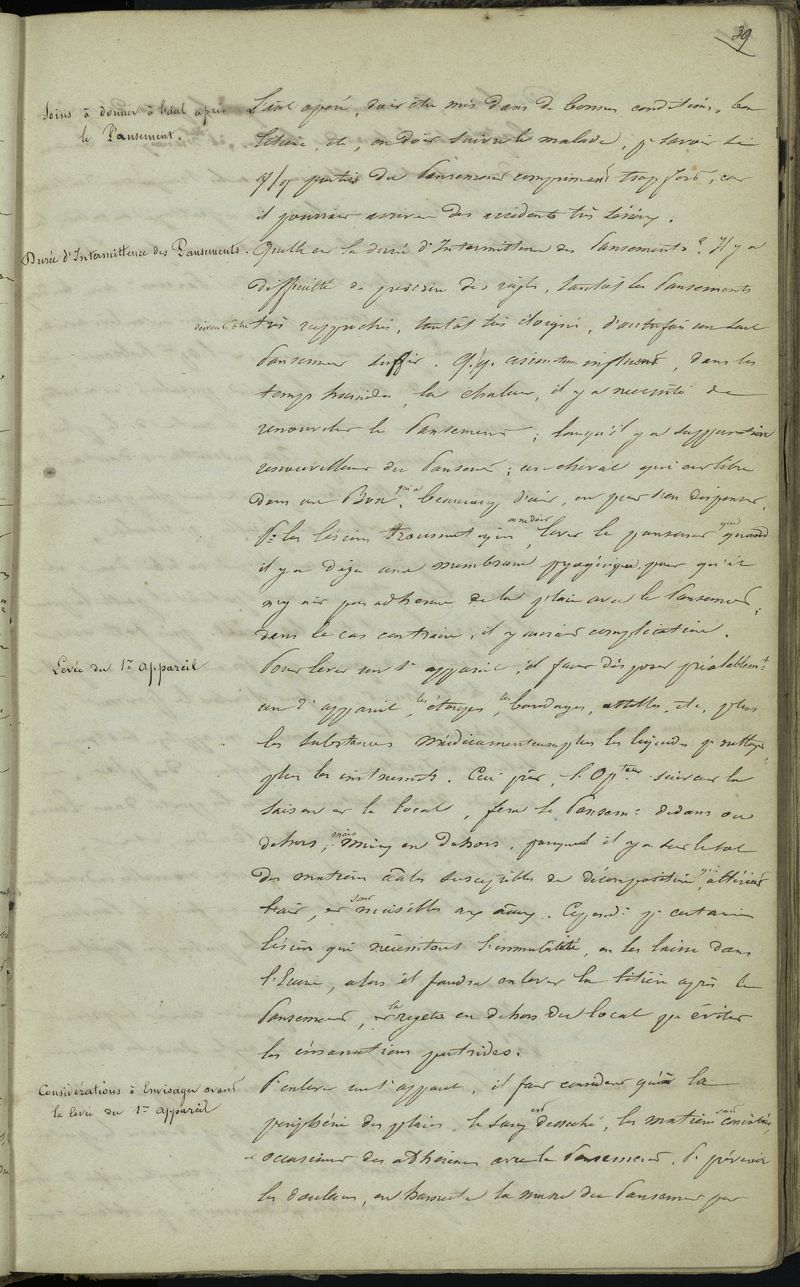 39
Soins à donner à l'eal après
le Pansement.
L'eal opéré, doit être mis dans de bonnes conditions, bonne
litière, etc, on doit suivre le malade, pr savoir si
q/q parties du Pansement compriment trop fort, car
il pourrait arriver des accidents très sérieux.
Durée d'Intermittence des Pansements.
Quelle est la durée d'Intermittence des Pansements? Il y a
difficulté de préciser des règles, tantôt les Pansements
doivent être très rapprochés, tantôt très éloignés, d'autrefois un seul
Pansement suffit. q/q. circonstances influent, dans les
temps humides, la chaleur, il y a nécessité de
renouveler le Pansement; lorsqu'il y a suppuration
renouvellement du Pansement; un cheval qui est libre
dans un Box, qui a beaucoup d'air, on peut s'en dispenser.
Pr les lésions traumatiques, on ne doit lever le pansement que quand
il y a déjà une membrane pyogénique, pour qu'il
n'y ait pas adhérence de la plaie avec le Pansement;
dans le cas contraire, il y aurait complication.
Levée du 1er appareil
Pour lever un 1er appareil, il faut disposer préalablemt
un 2e appareil, les étoupes, les bandages, attelles, etc, plus
les substances médicamenteuses, plus les liquides pr nettoyer,
plus les instruments. Ceci prêt, l'Opteur suivant la
saison et le local, fera le Pansemt dedans ou
dehors, mais mieux en dehors, parceque il y a sur le sol
des matières susceptibles de décomposition, qui altèrent
l'air, et sont nuisibles aux eaux. Cependt pr certaines
lésions qui nécessitent l'immobilité, on les laisse dans
l'Ecurie, alors il faudra enlever la litière après le
Pansement, et la rejeter en dehors du local pr éviter
les émanations putrides.
Considérations à Envisager avant
la levée du 1er appareil
Pr enlever un 1er appareil, il faut considérer qu'à la
périphérie des plaies, le sang est desséché, les matières sont concrètes,
et occasionnent des adhérences avec le Pansement. Pr prévenir
les douleurs, on humecte la masse du Pansement par